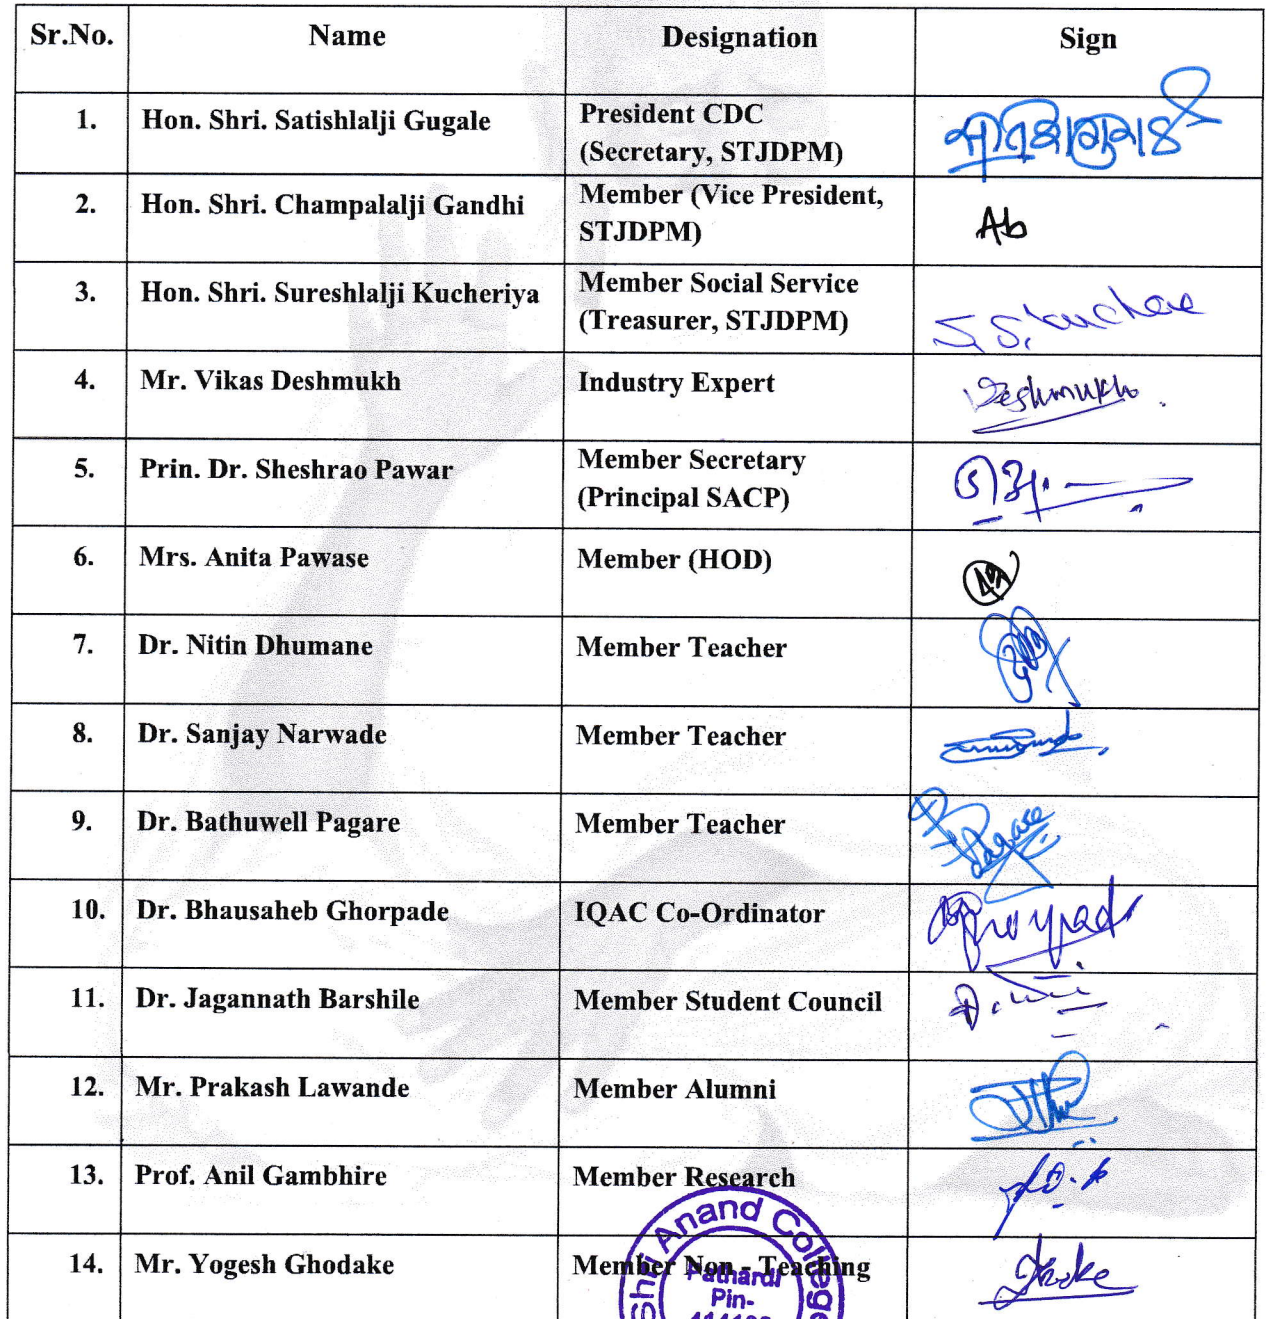 Sr.No. Name Designation Sign
1. Hon. Shri. Satishlalji Gugale President CDC
(Secretary, STJDPM)
2. Hon. Shri. Champalalji Gandhi Member (Vice President,
STJDPM)
3. Hon. Shri. Sureshlalji Kucheriya Member Social Service
(Treasurer, STJDPM)
4. Mr. Vikas Deshmukh Industry Expert Deshmukh
5. Prin. Dr. Sheshrao Pawar Member Secretary
(Principal SACP)
6. Mrs. Anita Pawase Member (HOD)
7. Dr. Nitin Dhumane Member Teacher
8. Dr. Sanjay Narwade Member Teacher
9. Dr. Bathuwell Pagare Member Teacher Pagare
10. Dr. Bhausaheb Ghorpade IQAC Co-Ordinator
11. Dr. Jagannath Barshile Member Student Council
12. Mr. Prakash Lawande Member Alumni
13. Prof. Anil Gambhire Member Research
14. Mr. Yogesh Ghodake Member Non - Teaching
Shri Anand College
Pathardi
Pin-